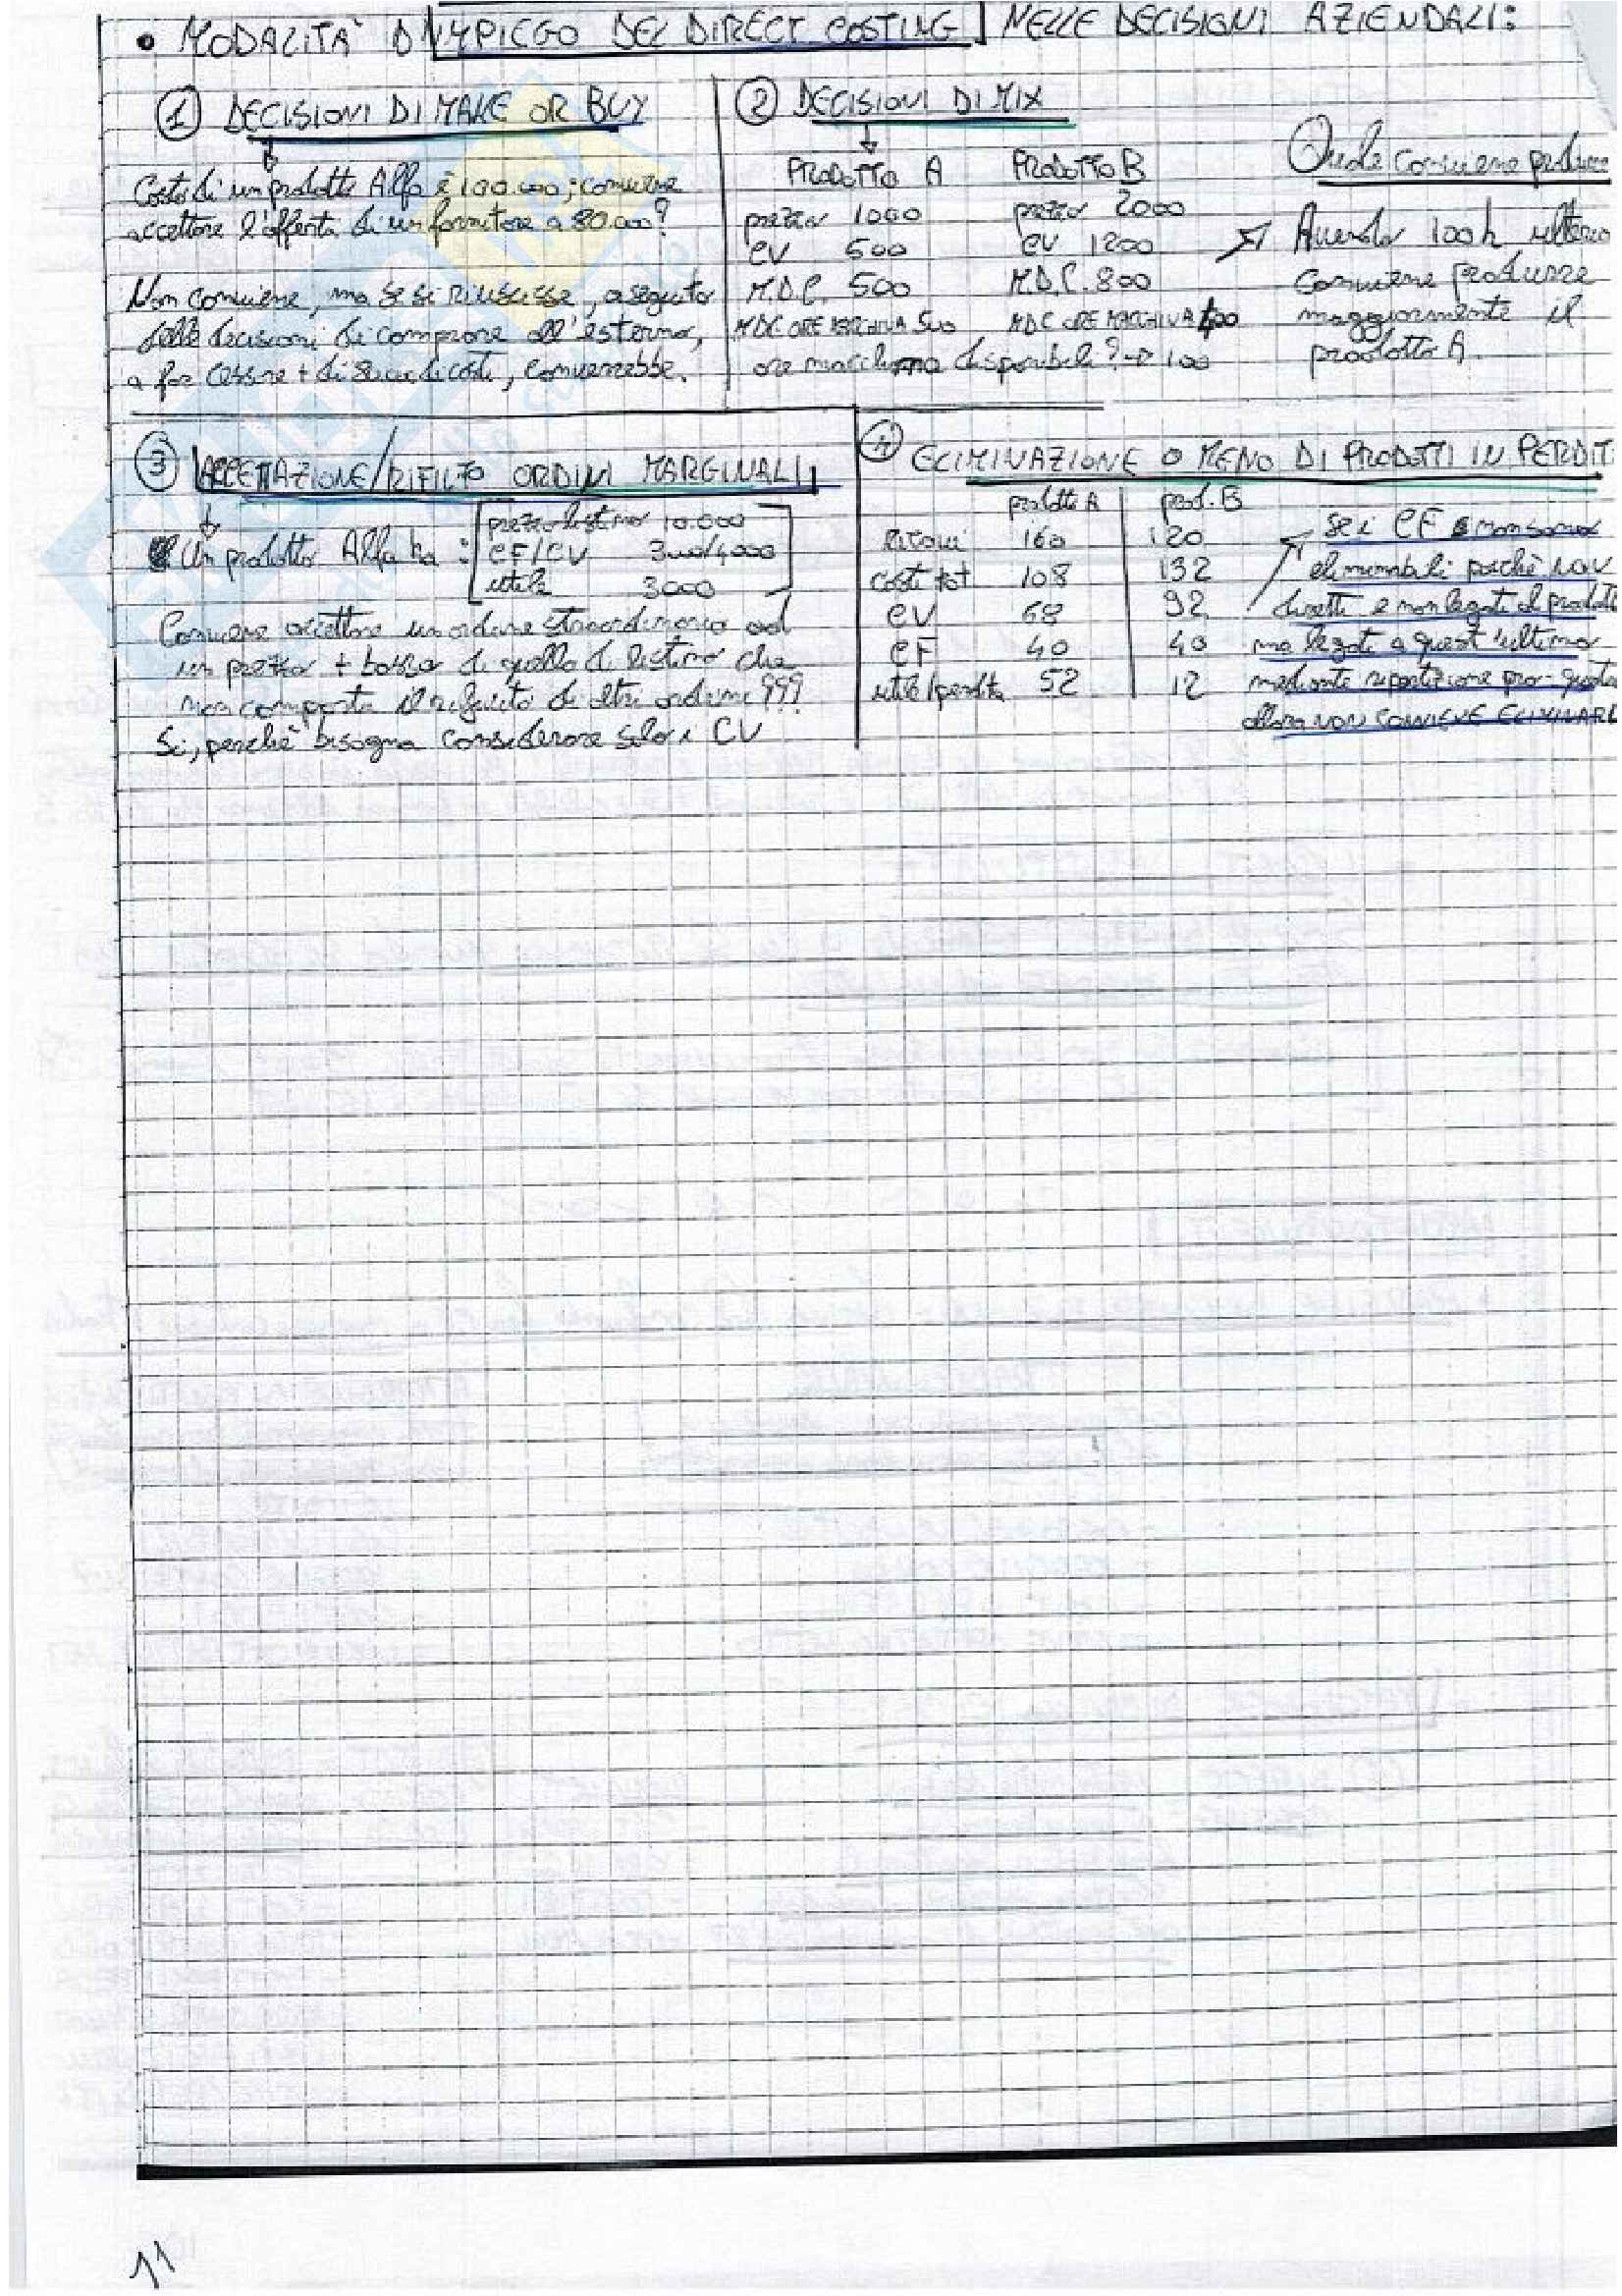 • MODALITÀ D'IMPIEGO DEL DIRECT COSTING NELLE DECISIONI AZIENDALI:
① DECISIONI DI MAKE OR BUY
Costo di un prodotto Alfa è 100.000; conviene
accettare l'offerta di un fornitore a 80.000?
Non conviene, ma se si riuscisse, a seguito
delle decisioni di comprare all'esterno,
a far cessare + di costi, converrebbe.
② DECISIONI DI MIX
PRODOTTO A PRODOTTO B
prezzo 1000 prezzo 2000
CV 500 CV 1200
M.D.C. 500 M.D.C. 800
MDC ORE MACCHINA 500 MDC ORE MACCHINA 400
ore macchina disponibili? → 100
Quale conviene produrre
Avendo 100h
conviene produrre
maggiormente il
prodotto A.
③ ACCETTAZIONE/RIFIUTO ORDINI MARGINALI
Un prodotto Alfa ha:
prezzo listino 10.000
CF/CV 3000/4000
utile 3000
Conviene accettare un ordine straordinario ad
un prezzo + basso di quello di listino che
non comporta il rifiuto di altri ordini???
Si, perchè bisogna considerare solo i CV
④ ELIMINAZIONE O MENO DI PRODOTTI IN PERDIT
prodotto A prod. B
Ricavi 160 120
costi tot 108 132
CV 68 92
CF 40 40
utile/perdita 52 12
se i CF non sono
eliminabili perchè NON
diretti e non legati al prodotto
ma legati a quest'ultimo
mediante ripartizione pro-quota
allora NON CONVIENE ELIMINARL
11